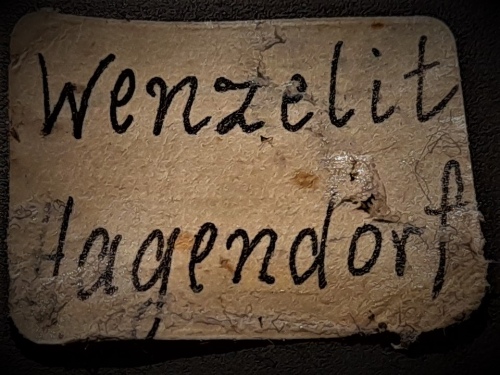 Wenzelit
Hagendorf